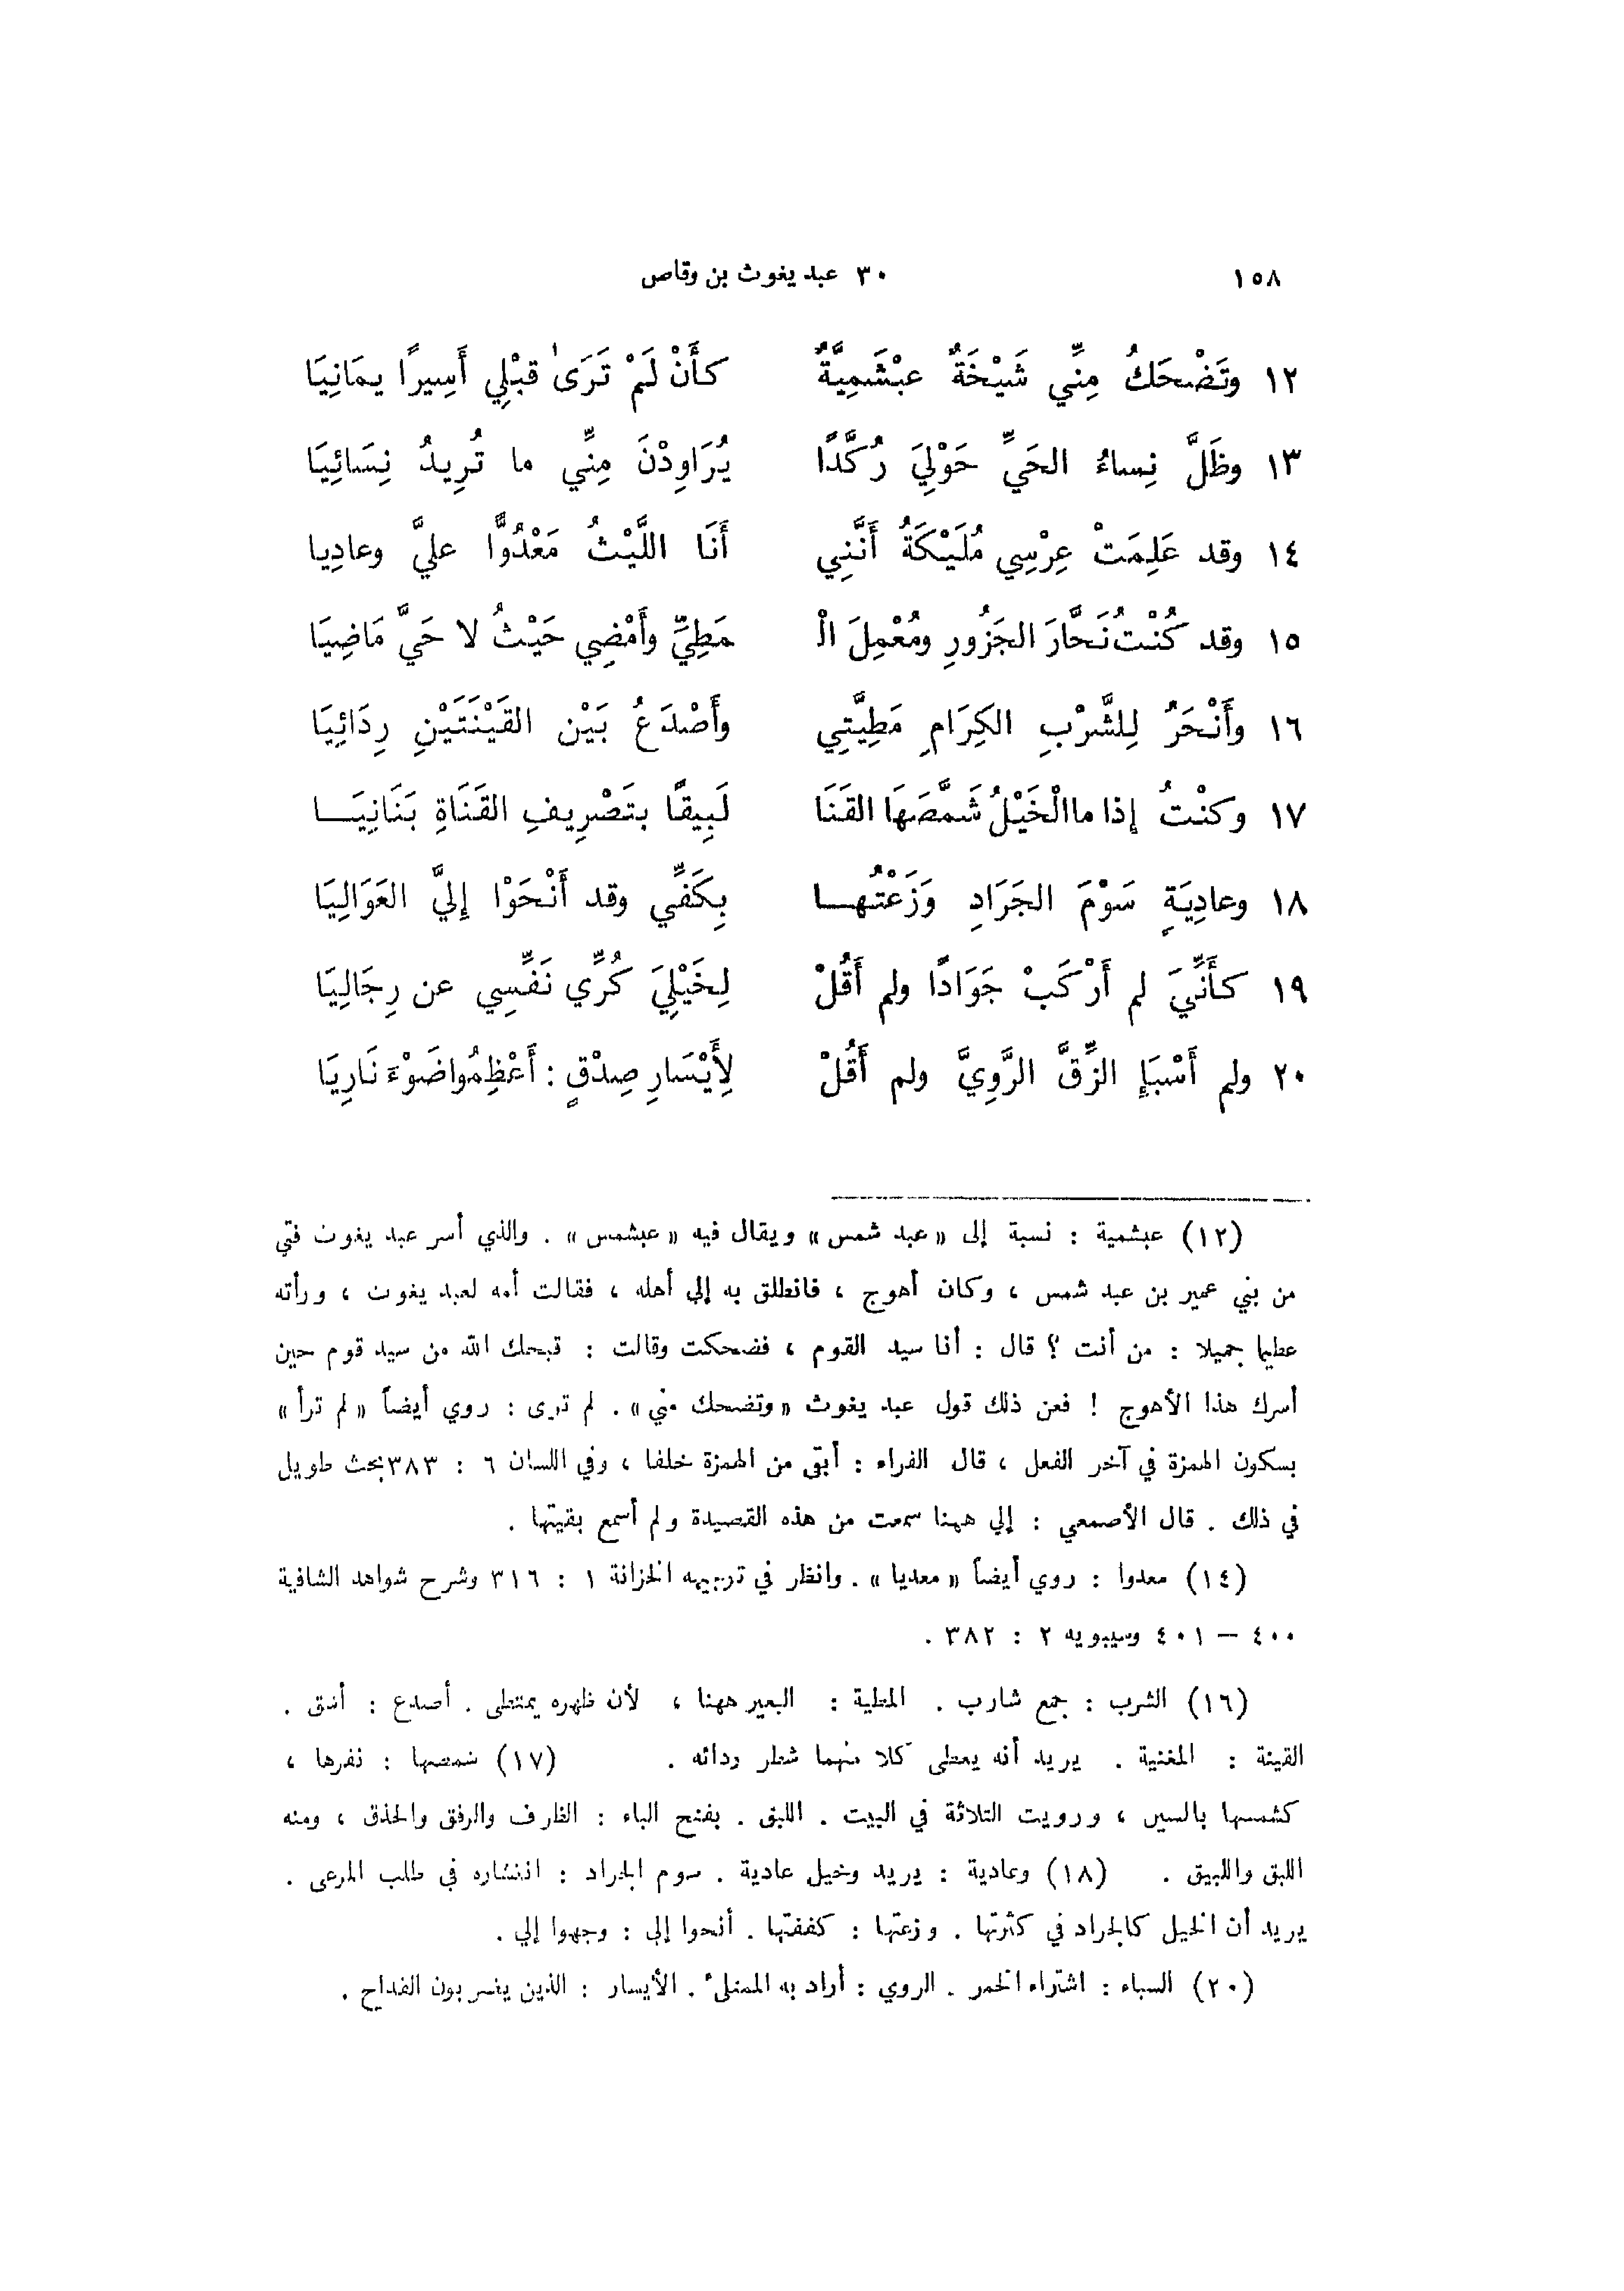 ١٥٨ ٣٠ عبد يغوث بن وقاص
١٢ وتَضْحَكُ مِنِّي شَيْخَةٌ عبْشَمِيَّةٌ كأَنْ لَمْ تَرَىٰ قبْلِي أَسِيرًا يمَانِيَا
١٣ وظَلَّ نِساءُ الحَيِّ حَوْلِيَ رُكَّدًا يُرَاوِدْنَ مِنِّي ما تُرِيدُ نِسَائِيَا
١٤ وقد عَلِمَتْ عِرْسِي مُلَيْكَةُ أَنَّنِي أَنَا اللَّيْثُ مَعْدُوًّا عليَّ وعادِيا
١٥ وقد كُنْتُ نَحَّارَ الجَزُورِ ومُعْمِلَ الْ مَطِيِّ وأَمْضِي حَيْثُ لا حَيَّ مَاضِيَا
١٦ وأَنْحَرُ لِلشَّرْبِ الكِرَامِ مَطِيَّتِي وأَصْدَعُ بَيْن القَيْنَتَيْنِ رِدَائِيَا
١٧ وكنْتُ إذا ما الْخَيْلُ شَمَّصَهَا القَنَا لَبِيقًا بتَصْرِيفِ القَنَاةِ بَنَانِيَا
١٨ وعادِيَةٍ سَوْمَ الجَرَادِ وَزَعْتُها بِكَفِّي وقد أَنْحَوْا إليَّ العَوَالِيَا
١٩ كأَنِّيَ لم أَرْكَبْ جَوَادًا ولم أَقُلْ لِخَيْلِيَ كُرِّي نَفِّسِي عن رِجَالِيَا
٢٠ ولم أَسْبَإِ الزِّقَّ الرَّوِيَّ ولم أَقُلْ لِأَيْسَارِ صِدْقٍ : أَعْظِمُوا ضَوْءَ نَارِيَا
(١٢) عبشمية : نسبة إلى «عبد شمس» ويقال فيه «عبشمس» . والذي أسر عبد يغوث فتى
من بني عمير بن عبد شمس ، وكان أهوج ، فانطلق به إلى أهله ، فقالت أمه لعبد يغوث ، ورأته
عظيما جميلا : من أنت ؟ قال : أنا سيد القوم ، فضحكت وقالت : قبحك الله من سيد قوم حين
أسرك هذا الأهوج ! فعن ذلك قول عبد يغوث «وتضحك مني» . لم ترى : روي أيضاً «لم ترأ»
بسكون الهمزة في آخر الفعل ، قال الفراء : أبقى من الهمزة خلفا ، وفي اللسان ٦ : ٣٨٣ بحث طويل
في ذلك . قال الأصمعي : إلى ههنا سمعت من هذه القصيدة ولم أسمع بقيتها .
(١٤) معدوا : روي أيضاً «معديا» . وانظر في توجيهه الخزانة ١ : ٣١٦ وشرح شواهد الشافية
٤٠٠ – ٤٠١ وسيبويه ٢ : ٣٨٢ .
(١٦) الشرب : جمع شارب . المطية : البعير ههنا ، لأن ظهره يمتطى . أصدع : أشق .
القينة : المغنية . يريد أنه يعطى كلا منهما شطر ردائه . (١٧) شمصها : نفرها ،
كشمسها بالسين ، ورويت الثلاثة في البيت . اللبق . بفتح الباء : الظرف والرفق والحذق ، ومنه
اللبق واللبيق . (١٨) وعادية : يريد وخيل عادية . سوم الجراد : انتشاره في طلب المرعى .
يريد أن الخيل كالجراد في كثرتها . وزعتها : كففتها . أنحوا إلى : وجهوا إلي .
(٢٠) السباء : اشتراء الخمر . الروي : أراد به الممتلئ . الأيسار : الذين يضربون القداح .